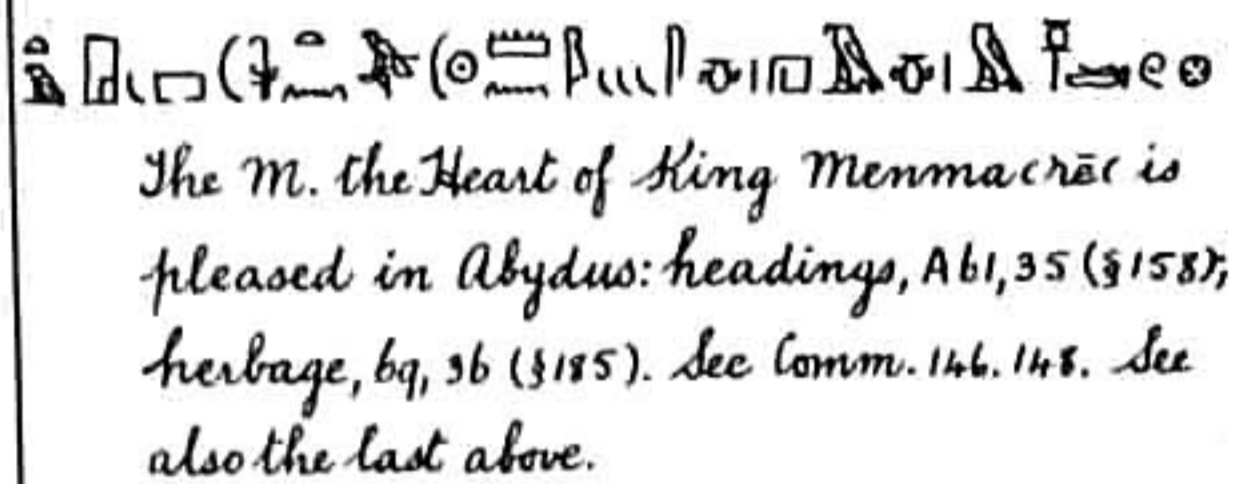 The M. the Heart of King Menmaʿrēʿ is
pleased in Abydus: headings, A61,35 (§158);
herbage, 69, 36 (§185). See Comm. 146. 148. See
also the last above.